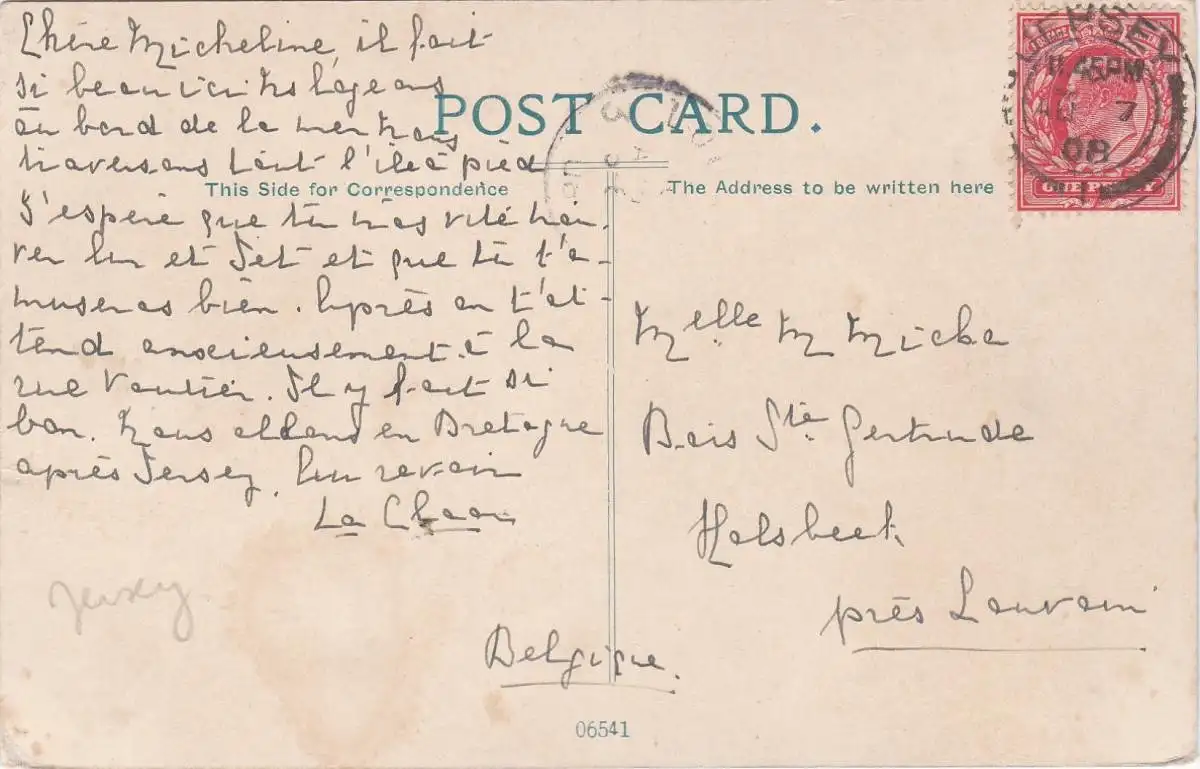 Chère Micheline, il fait
si beau ici. Ns logeons
au bord de la mer. Nous
traversons tout l'île à pied
J'espère que tu iras vite trou-
ver Lun et Jet et que tu t'a-
museras bien. Après on t'at-
tend anxieusement à la
rue Vautier. Il y fait si
bon. Nous allons en Bretagne
après Jersey. Au revoir
La
Jersey
POST CARD.
This Side for Correspondence
The Address to be written here
JERSEY
45PM
AU 7
08
ONE PENNY
Melle M Micha
Bois Ste Gertrude
Holsbeek
près Louvain
Belgique.
06541